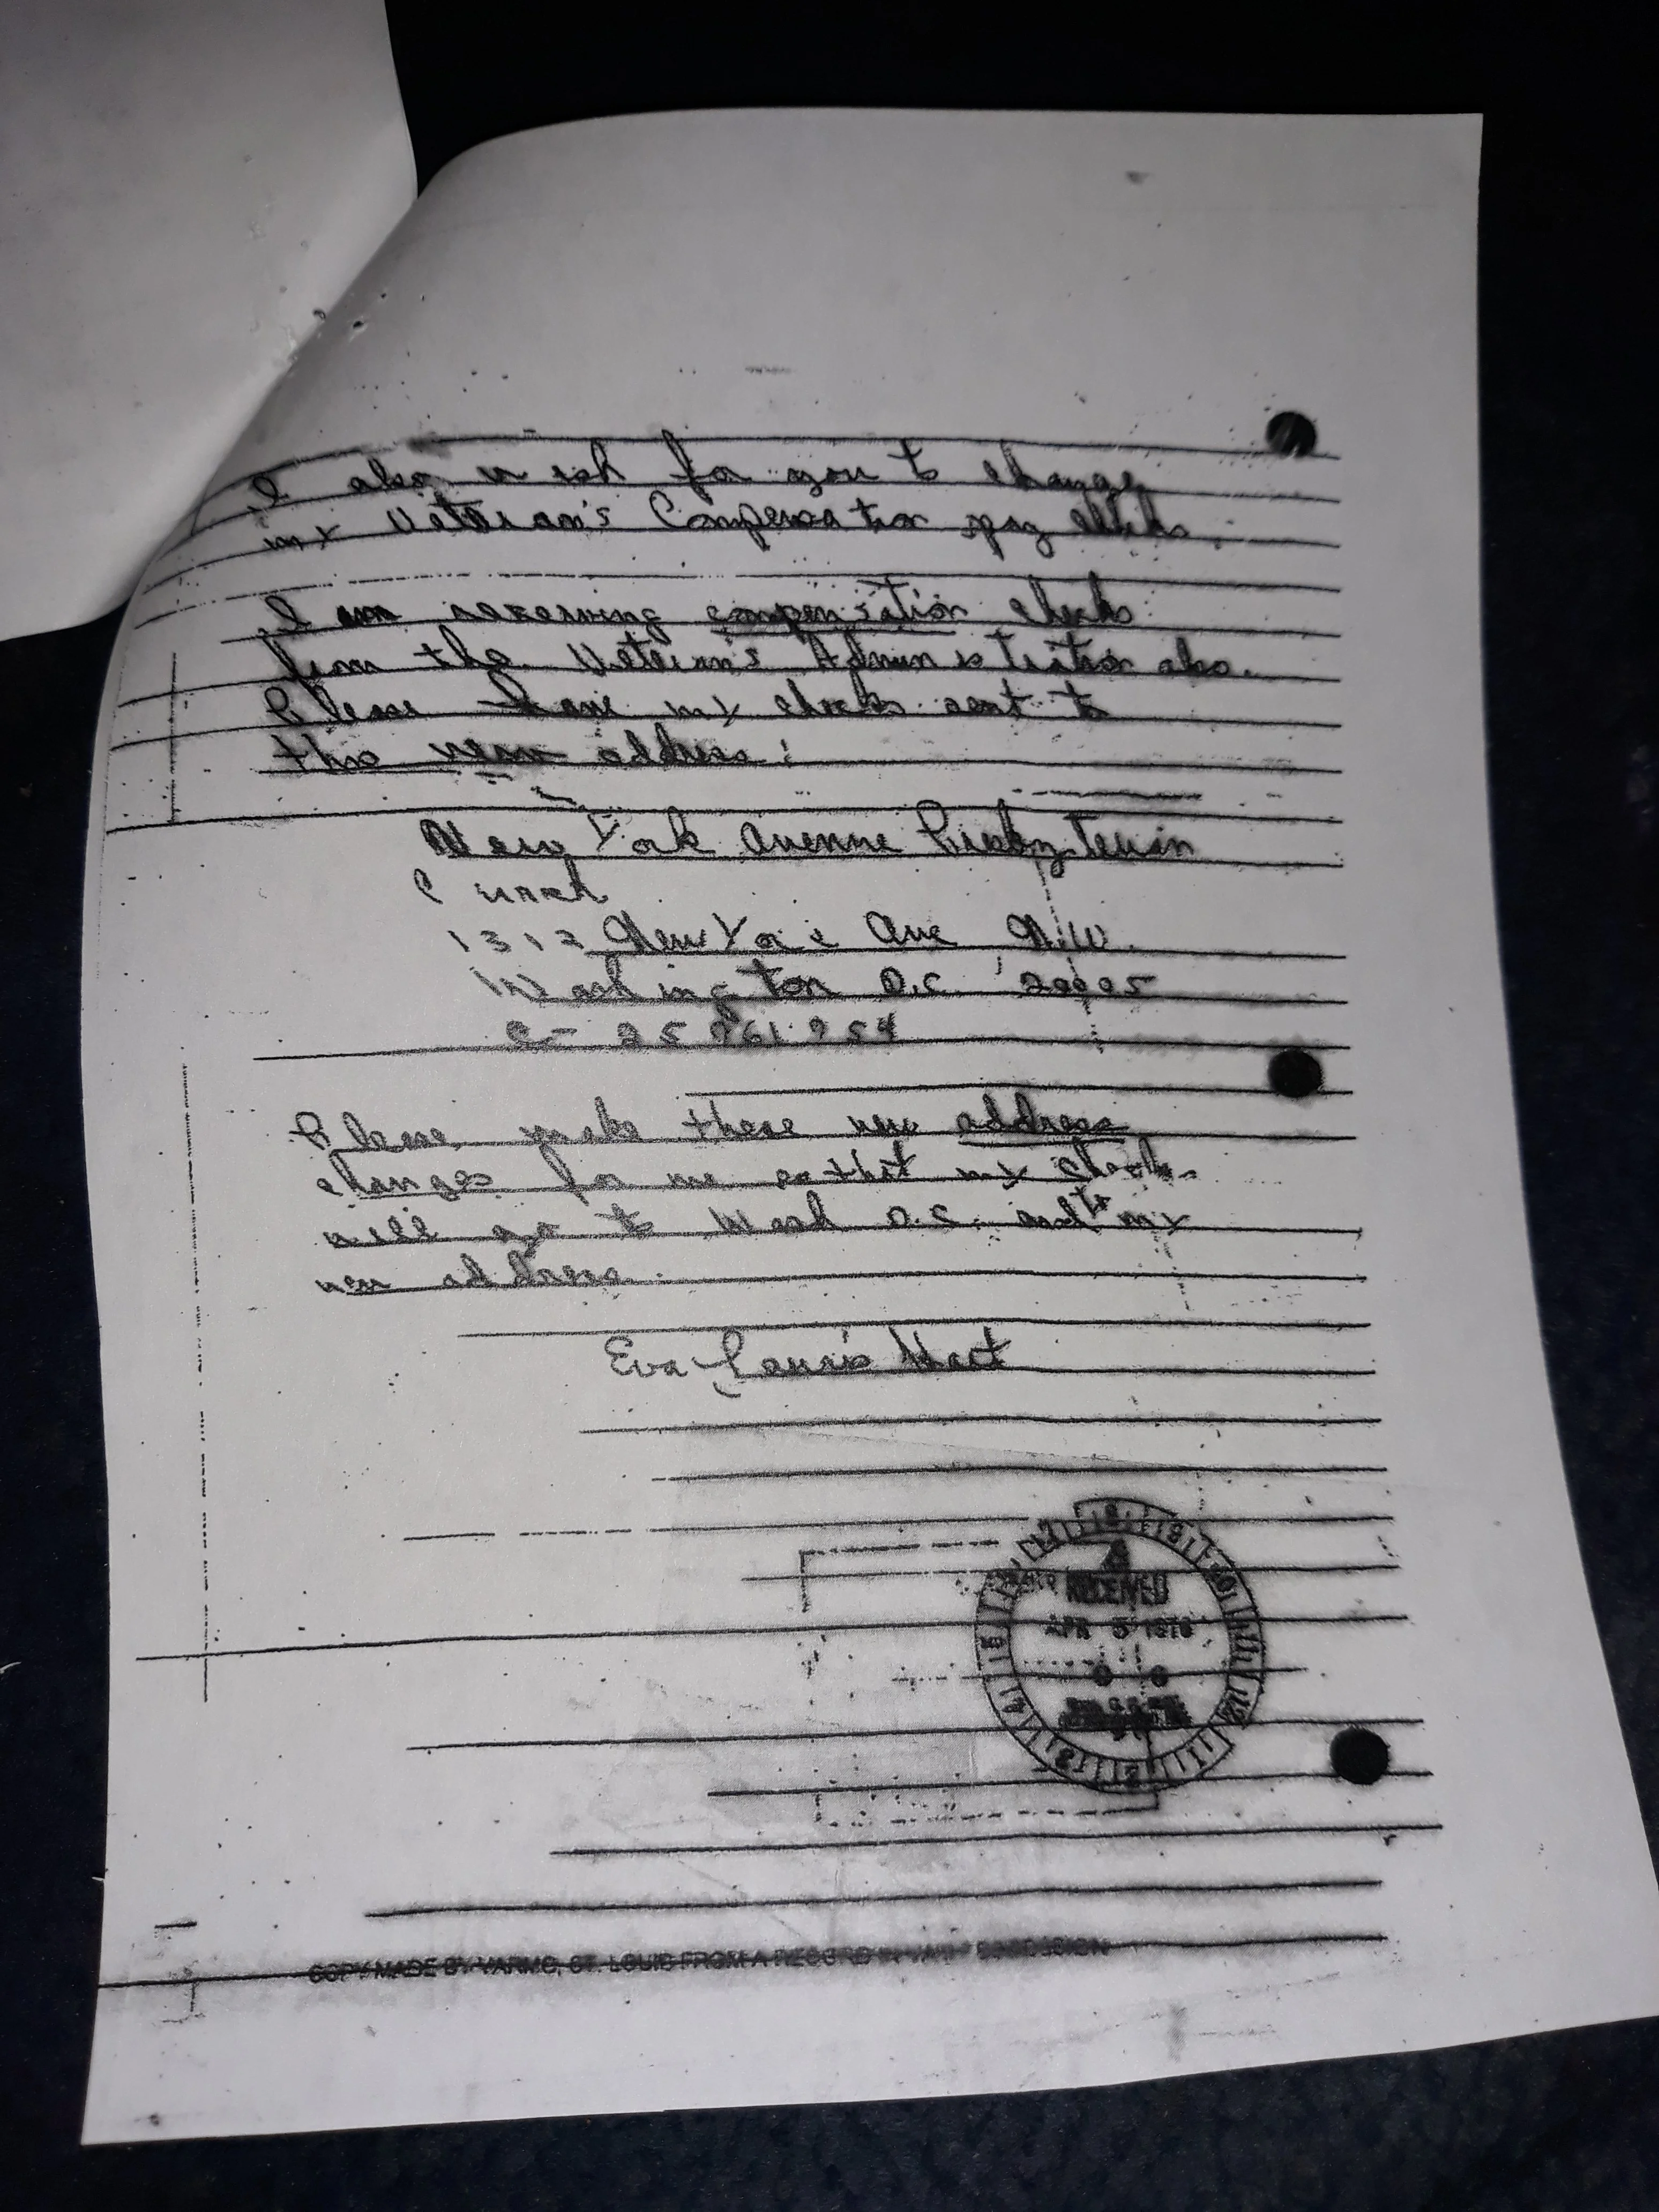 I also wish for you to change
my Veteran's Compensation pay checks.
I am receiving compensation checks
from the Veteran's Administration also.
Please have my checks sent to
this new address:
New York Avenue Presbyterin
Church
1313 New York Ave N.W.
Washington D.C. 20005
C- 25 961 254
Please make these new address
changes for me so that my checks
will go to Wash D.C. and to my
new address.
Eva Louis Hart
RECEIVED
APR 5 1978
COPY MADE BY VARMC, ST. LOUIS FROM A RECORD IN VA POSSESSION